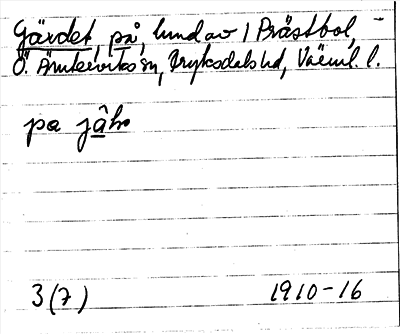 Gärdet, på, lund av / Prästbol,
Ö. Ämterviks sn, Fryksdals hd, Värml. l.
pa jâ̱ḷ
3(7) 1910-16